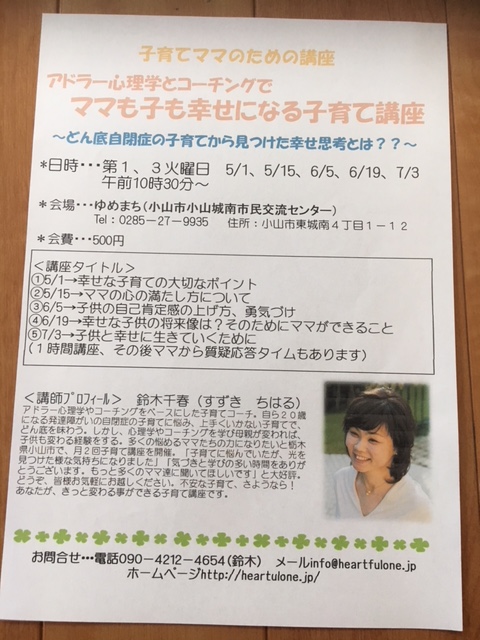 子育てママのための講座
アドラー心理学とコーチングで
ママも子も幸せになる子育て講座
～どん底自閉症の子育てから見つけた幸せ思考とは？？～
＊日時・・・第１、３火曜日　5/1、5/15、6/5、6/19、7/3
午前10時30分～
＊会場・・・ゆめまち（小山市小山城南市民交流センター）
Tel：0285－27－9935　住所：小山市東城南４丁目１－１２
＊会費・・・500円
＜講座タイトル＞
①5/1→幸せな子育ての大切なポイント
②5/15→ママの心の満たし方について
③6/5→子供の自己肯定感の上げ方、勇気づけ
④6/19→幸せな子供の将来像は？そのためにママができること
⑤7/3→子供と幸せに生きていくために
（１時間講座、その後ママから質疑応答タイムもあります）
＜講師ﾌﾟﾛﾌｨｰﾙ＞　鈴木千春（すずき　ちはる）
アドラー心理学やコーチングをベースにした子育てコーチ。自ら２０歳
になる発達障がいの自閉症の子育てに悩み、上手くいかない子育てで、
どん底を味わう。しかし、心理学やコーチングを学び母親が変われば、
子供も変わる経験をする。多くの悩めるママたちの力になりたいと栃木
県小山市で、月２回子育て講座を開催。「子育てに悩んでいたが、光を
見つけた様な気持ちになりました」「気づきと学びの多い時間をありが
とうございます。もっと多くのママ達に聞いてほしいです」と大好評。
どうぞ、皆様お気軽にお越しください。不安な子育て、さようなら！
あなたが、きっと変わる事ができる子育て講座です。
お問合せ・・・電話090－4212－4654（鈴木）　メールinfo@heartfulone.jp
ホームページhttp://heartulone.jp/